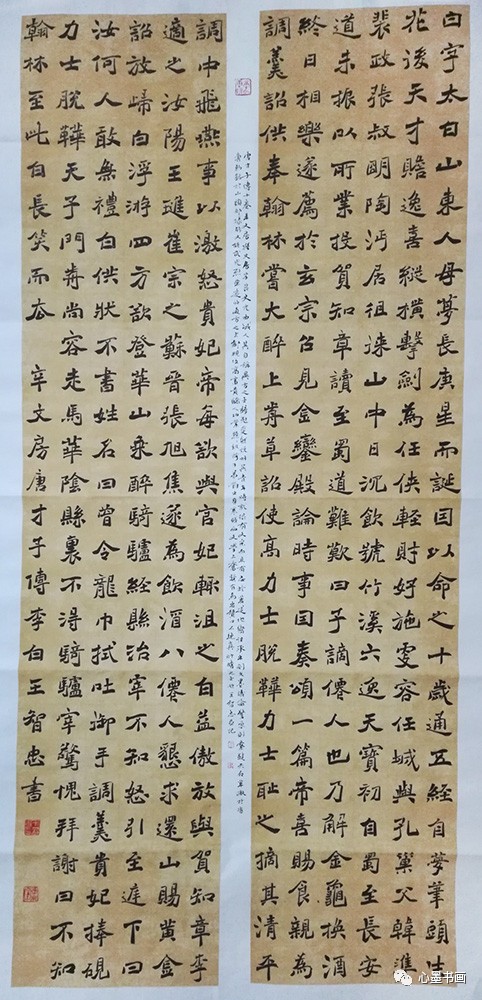 白字太白山東人母夢長庚星而誕因以命之十歲通五經自夢筆頭生
花後天才贍逸喜縱橫擊劍為任俠輕財好施更客任城與孔巢父韓準
裴政張叔明陶沔居徂徠山中日沉飲號竹溪六逸天寶初自蜀至長安
道未振以所業投賀知章讀至蜀道難歎曰子謫僊人也乃解金龜換酒
終日相樂遂薦於玄宗召見金鑾殿論時事因奏頌一篇帝喜賜食親為
調羹詔供奉翰林嘗大醉上前草詔使高力士脫鞾力士恥之摘其清平
調中飛燕事以激怒貴妃帝每欲與官妃輒沮之白益傲放與賀知章李
適之汝陽王璡崔宗之蘇晉張旭焦遂為飲酒八僊人懇求還山賜黃金
詔放歸白浮游四方欲登華山乘醉騎驢經縣治宰不知怒引至庭下曰
汝何人敢無禮白供狀不書姓名曰曾令龍巾拭吐御手調羹貴妃捧硯
力士脫鞾天子門前尚容走馬華陰縣裏不得騎驢宰驚愧拜謝曰不知
翰林至此白長笑而去 辛文房唐才子傳李白王智忠書
心墨书画